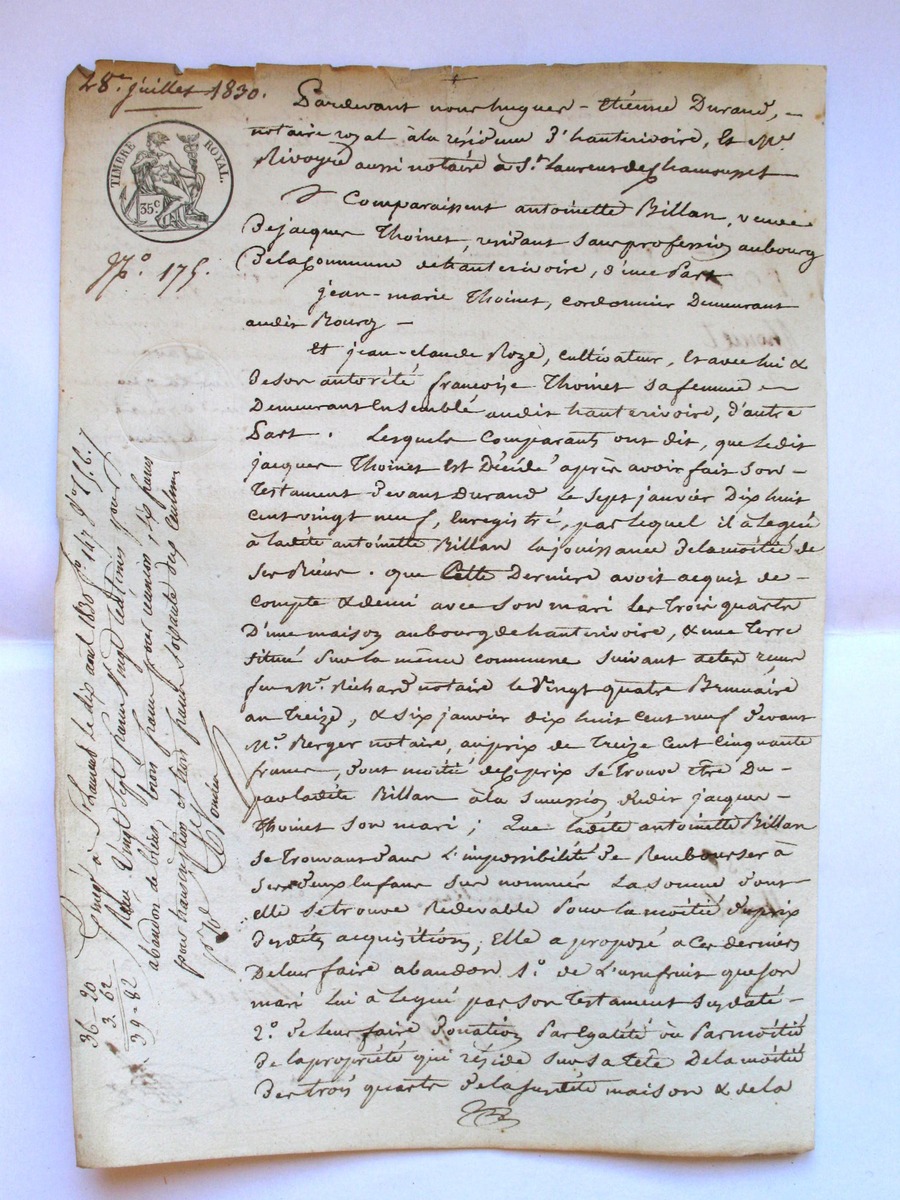 28e juillet 1830.
TIMBRE ROYAL.
35c
No. 175.
Pardevant nous hugues-étienne Durand,
notaire royal à la résidence d'hauterivoire, et Me
Rivoyre aussi notaire à St. Laurent de Chamousset
Comparaissent antoinette Billan, veuve
de jacques Thoinet, résidant sans profession au bourg
de la Commune de hauterivoire, d'une Part
jean-marie Thoinet, cordonnier Demeurant
audit Bourg
Et jean-claude Roze, cultivateur, et avec lui &
de son autorité françoise Thoinet sa femme
Demeurant Ensemble audit hauterivoire, d'autre
Part. Lesquels Comparants ont dit, que ledit
jacques Thoinet est Décédé après avoir fait son
Testament devant Durand le sept janvier Dix huit
cent vingt neuf, Enregistré, par lequel il à legué
à ladite antoinette Billan la jouissance de la moitié de
ses Biens. que Cette Derniere avoit acquis de
compte & demi avec son mari les Trois quarts
d'une maison au bourg de hauterivoire, & une Terre
située sur la même commune suivant actes reçus
feu Me. Richard notaire le vingt quatre Brumaire
an treize, & six janvier dix huit cent neuf devant
Me. Berger notaire, au prix de Treize cent cinquante
francs, dont moitié de ce prix se trouve être Du
par ladite Billan à la succession dudit jacques
Thoinet son mari; Que ladite antoinette Billan
se trouvant dans L'impossibilité de Rembourser à
ses deux Enfans sus nommés la somme dont
elle se trouve Redevable Pour la moitié du prix
desdites acquisitions; Elle a proposé a ces derniers
De leur faire abandon 1o. de l'usufruit que son
mari lui à legué par son Testament susdaté
2o. de leur faire donation Par Egalité ou Par moitié
de la propriété qui réside sur sa tête De la moitié
des trois quarts de la susdite maison & de la
Enregé à St. Laurent le dix aout 1830
Reçu vingt sept francs vingt centimes pour
abandon de biens, trois francs pour réunion, six francs
pour transcription et trois francs soixante deux centimes
pour 10e
36-20
3.62
39-82